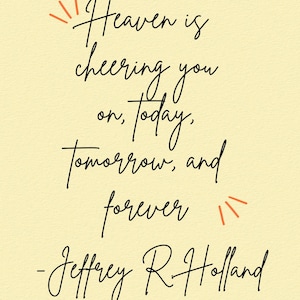 Heaven is
cheering you
on, today,
tomorrow, and
forever
-Jeffrey R Holland